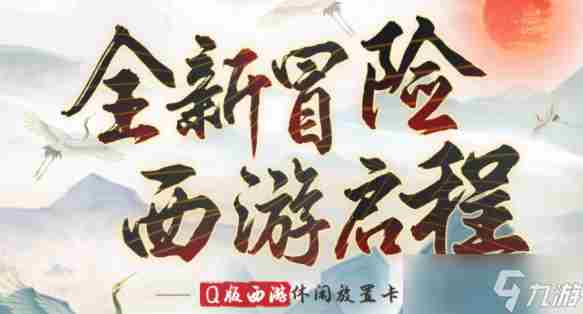 全新冒险
西游启程
Q版西游休闲放置卡
九游